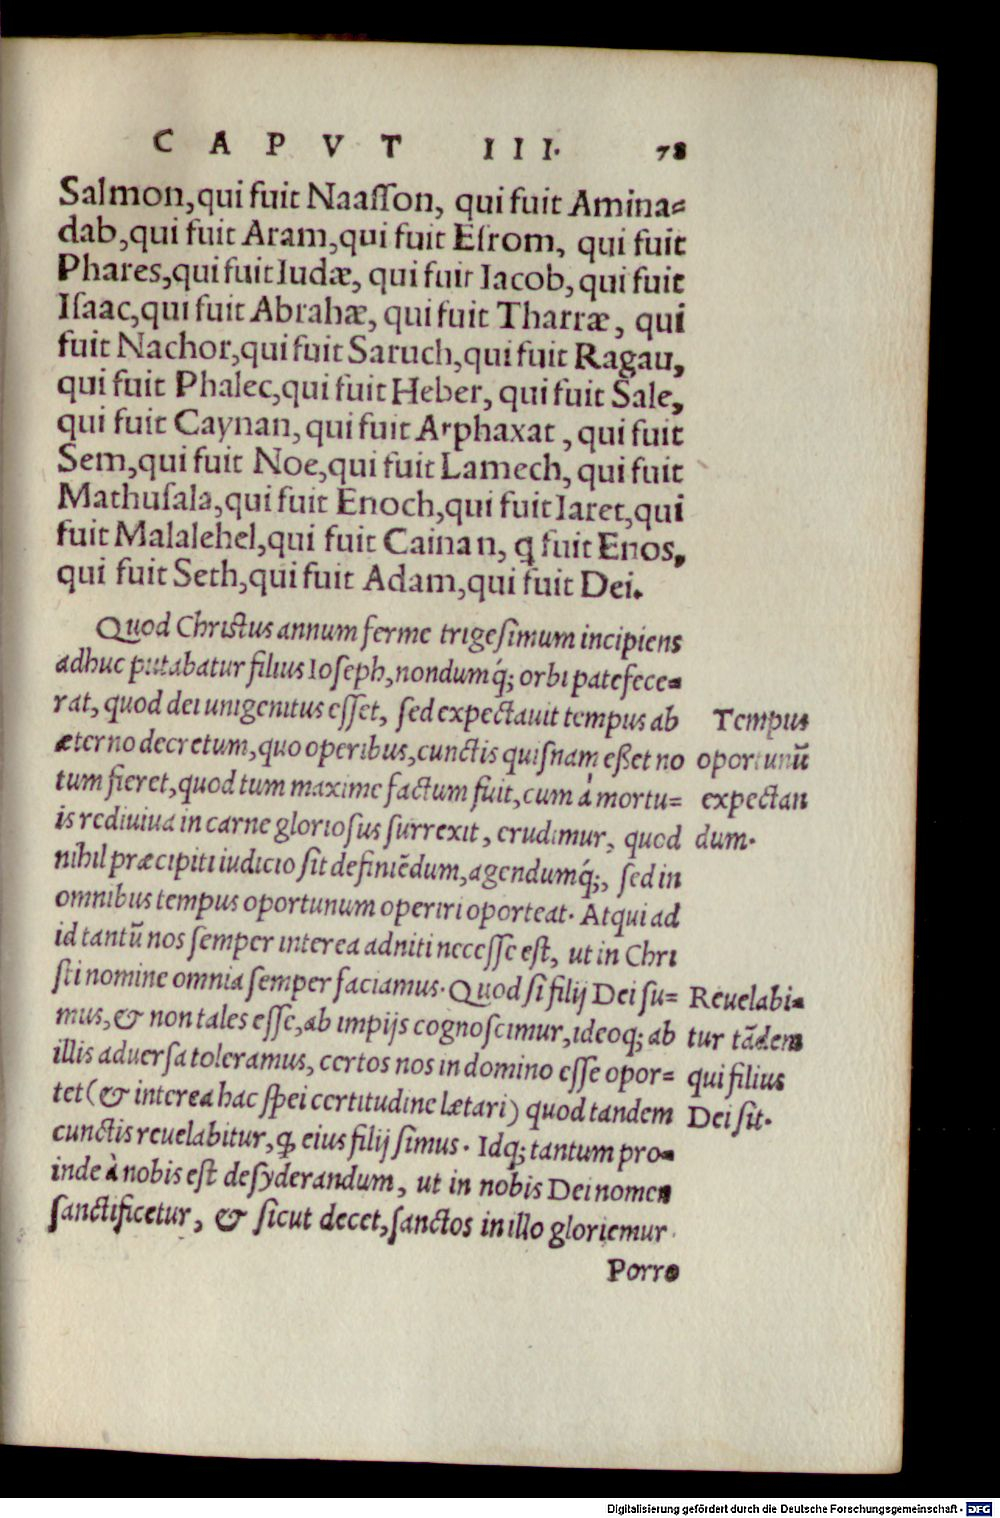 CAPVT III. 78
Salmon,qui fuit Naaſſon, qui fuit Amina-
dab,qui fuit Aram,qui fuit Eſrom, qui fuit
Phares,qui fuit Iudæ, qui fuit Iacob, qui fuit
Iſaac,qui fuit Abrahæ, qui fuit Tharræ, qui
fuit Nachor,qui fuit Saruch,qui fuit Ragau,
qui fuit Phalec,qui fuit Heber, qui fuit Sale,
qui fuit Caynan, qui fuit Arphaxat, qui fuit
Sem,qui fuit Noe,qui fuit Lamech, qui fuit
Mathuſala,qui fuit Enoch,qui fuit Iaret,qui
fuit Malalehel,qui fuit Cainan, q fuit Enos,
qui fuit Seth,qui fuit Adam,qui fuit Dei.
Quod Chriſtus annum ferme trigeſimum incipiens
adhuc putabatur filius Ioſeph,nondumq́; orbi patefece-
rat, quod dei unigenitus eſſet, ſed expectauit tempus ab
æterno decretum,quo operibus,cunctis quiſnam eßet no
tum fieret,quod tum maxime factum fuit,cum à mortu-
is rediuiua in carne glorioſus ſurrexit, erudimur, quod
nihil præcipiti iudicio ſit definiẽdum,agendumq́;, ſed in
omnibus tempus oportunum operiri oporteat. Atqui ad
id tantũ nos ſemper interea adniti neceſſe eſt, ut in Chri
ſti nomine omnia ſemper faciamus. Quod ſi filij Dei ſu-
mus,& non tales eſſe,ab impijs cognoſcimur,ideoq; ab
illis aduerſa toleramus, certos nos in domino eſſe opor-
tet(& interea hac ſpei certitudine lætari) quod tandem
cunctis reuelabitur,ꝙ eius filij ſimus. Idq; tantum pro-
inde à nobis eſt deſyderandum, ut in nobis Dei nomen
ſanctificetur, & ſicut decet,ſanctos in illo gloriemur.
Porro
Tempus
oportunũ
expectan
dum.
Reuelabi-
tur tãdem
qui filius
Dei ſit.
Digitalisierung gefördert durch die Deutsche Forschungsgemeinschaft - DFG